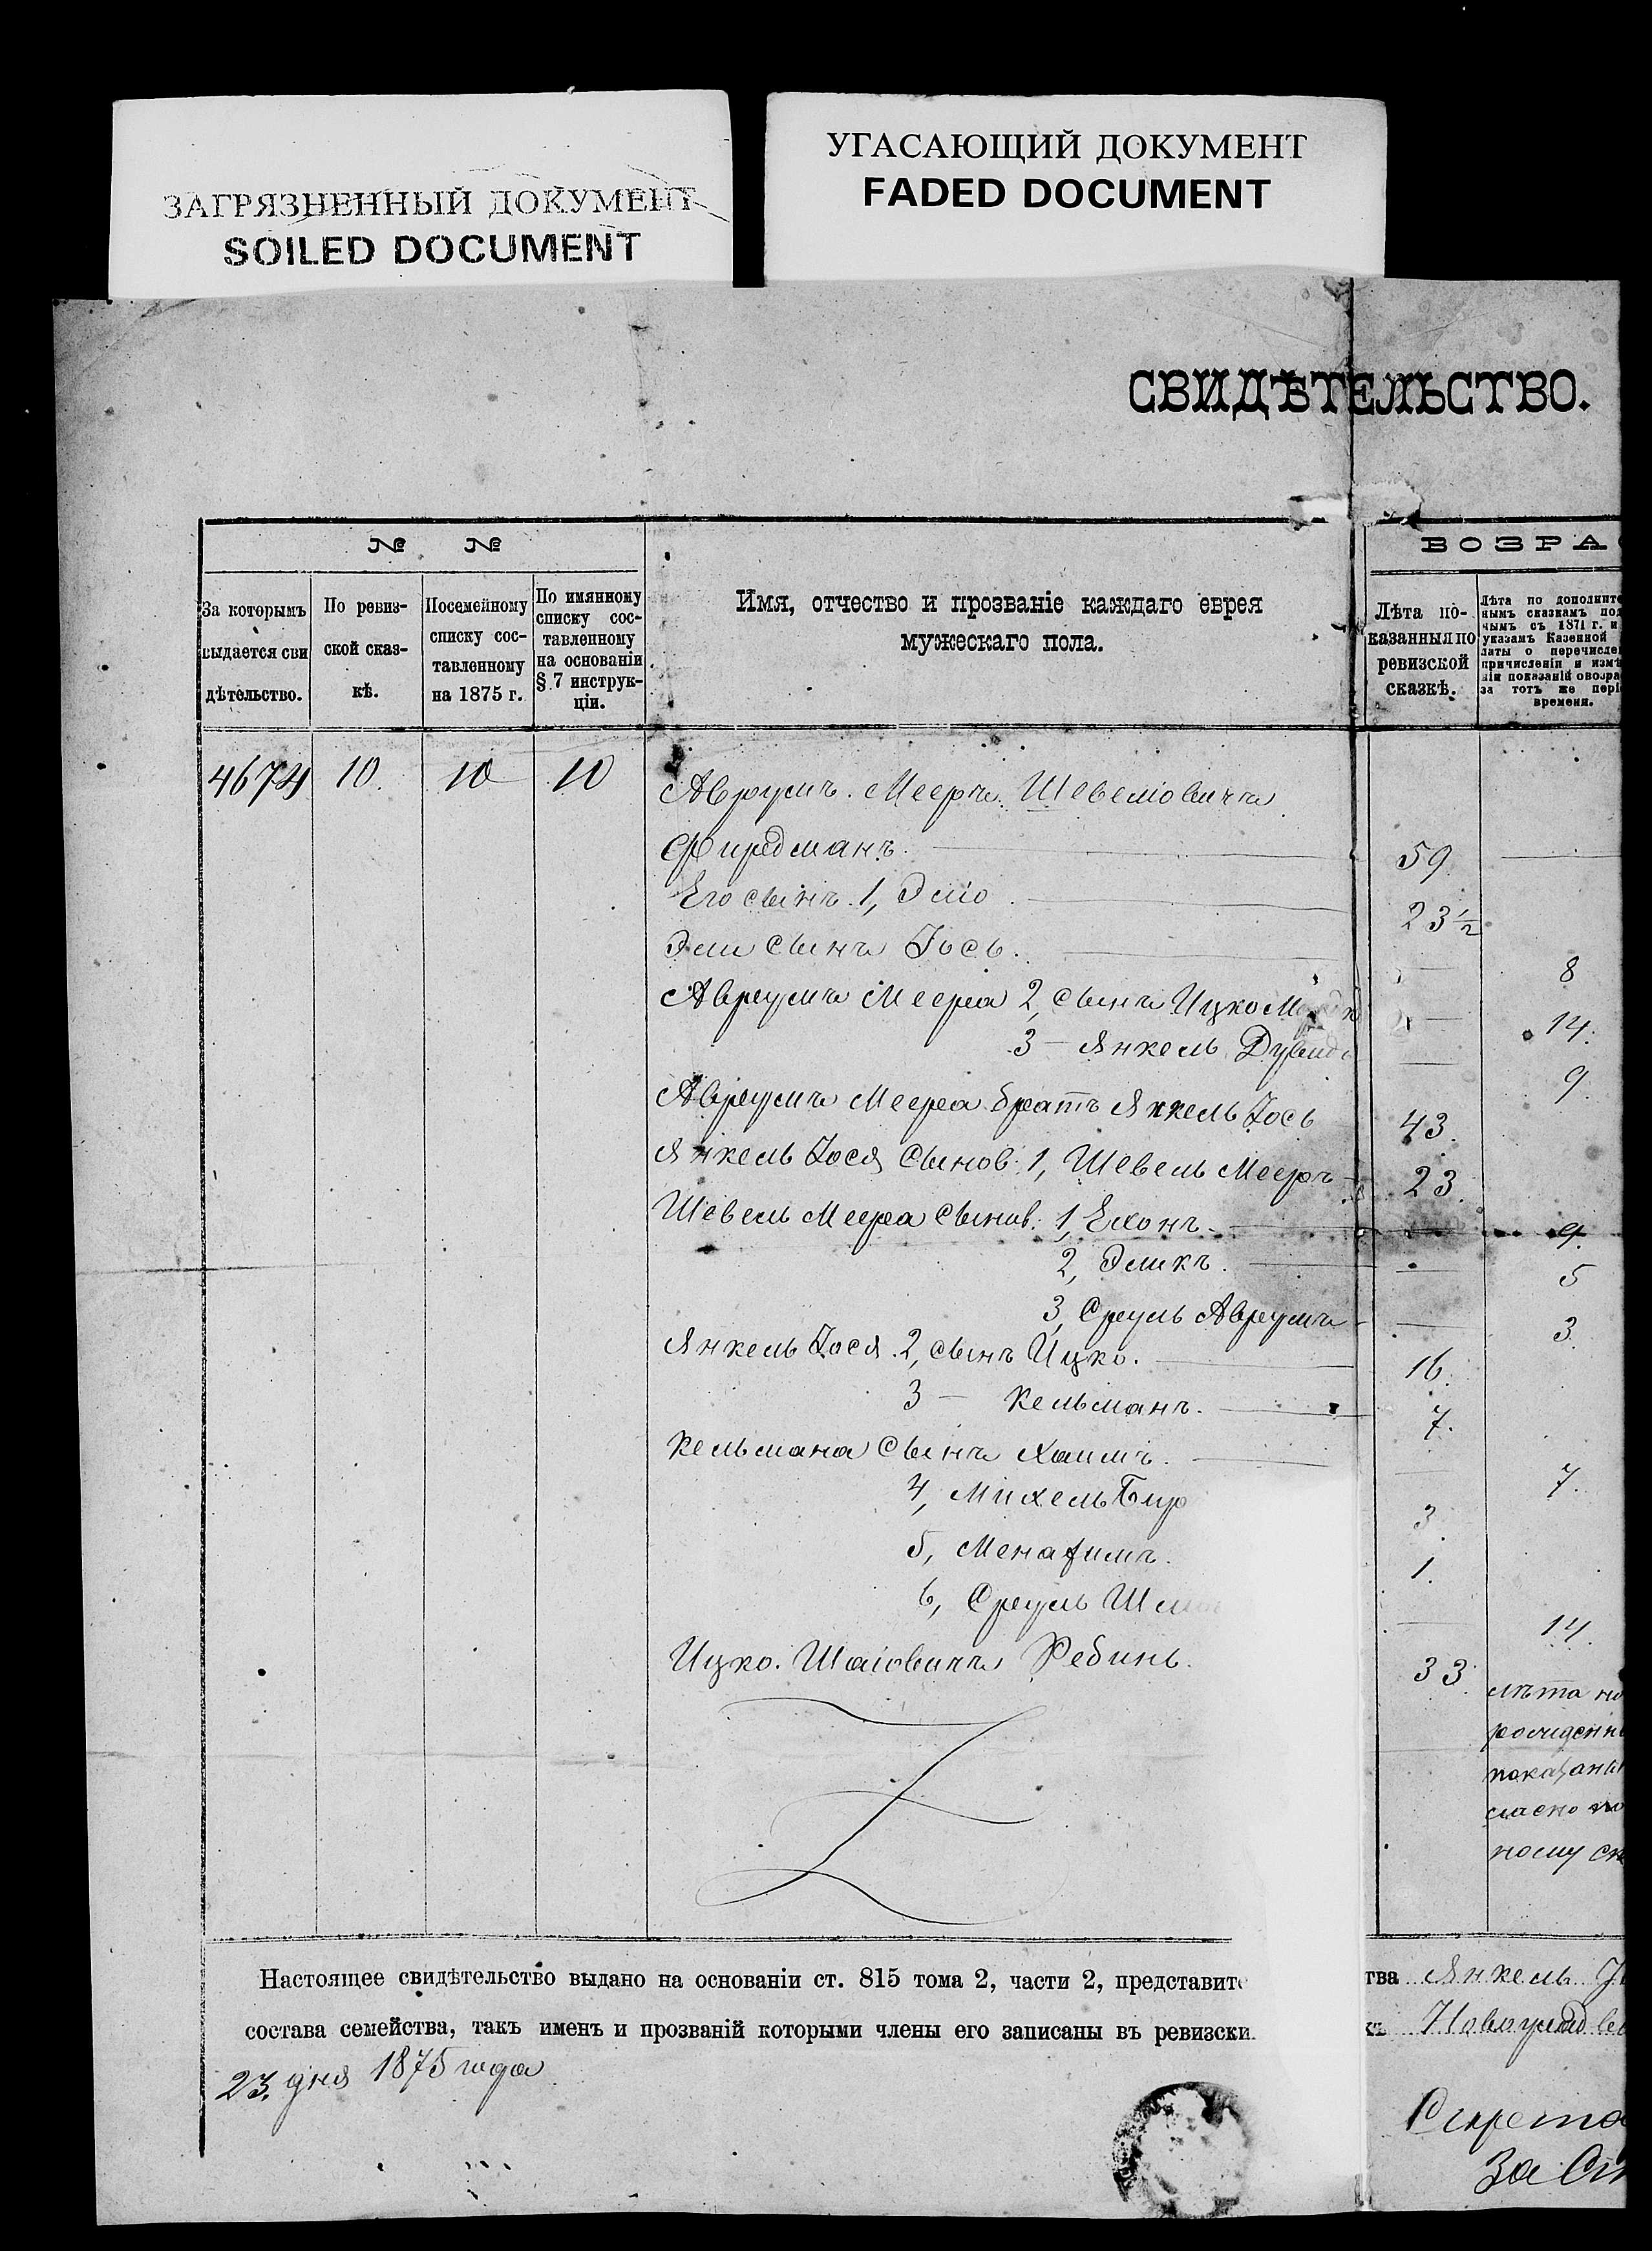 ЗАГРЯЗНЕННЫЙ ДОКУМЕНТ
SOILED DOCUMENT
УГАСАЮЩИЙ ДОКУМЕНТ
FADED DOCUMENT
СВИДѢТЕЛЬСТВО.
№ №
За которымъ выдается сви
дѣтельство.
По ревиз-
ской сказ-
кѣ.
Посемейному
списку сос-
тавленному
на 1875 г.
По имянному
списку сос-
тавленному
на основаніи
§ 7 инструк-
ціи.
Имя, отчество и прозваніе каждаго еврея
мужескаго пола.
ВОЗРА
Лѣта по-
казанныя по
ревизской
сказкѣ.
Лѣта по дополните
нымъ сказкамъ по
чымъ съ 1871 г. и
указамъ Казенной
латы о перечисле
причисленіи и измѣ
ніи показаній о возра
за тотъ же пері
времени.
4674 10. 10 10 Аврумъ. Мееръ Шевеліовичъ
Фиредманъ. 59
Его сынъ. 1, Эліо. 23½
Эли сынъ Іось. 8
Аврумъ Меера 2, сынъ Ицко 14.
3 — Янкель 9.
Аврумъ Меера братъ Янкель Іось 43.
Янкель Іося сынов: 1, Шевель Мееръ 23.
Шевель Меера сынов: 1, Елхонъ 9.
2, Эликъ. 5
3, Сруль Аврумъ 3.
Янкель Іося 2, сынъ Ицко. 16.
3 — Кельманъ. 7.
Кельмана сынъ Хаимъ. 7.
4, Михель Бер 3.
5, Менахимъ. 1.
6, Сруль 14.
Ицко. Шаіовичъ Ребинь. 33.
лѣта
показаны
Настоящее свидѣтельство выдано на основаніи ст. 815 тома 2, части 2, представит тва Янкель
состава семейства, такъ именъ и прозваній которыми члены его записаны въ ревизски
23. дня 1875 года
Секрета
За